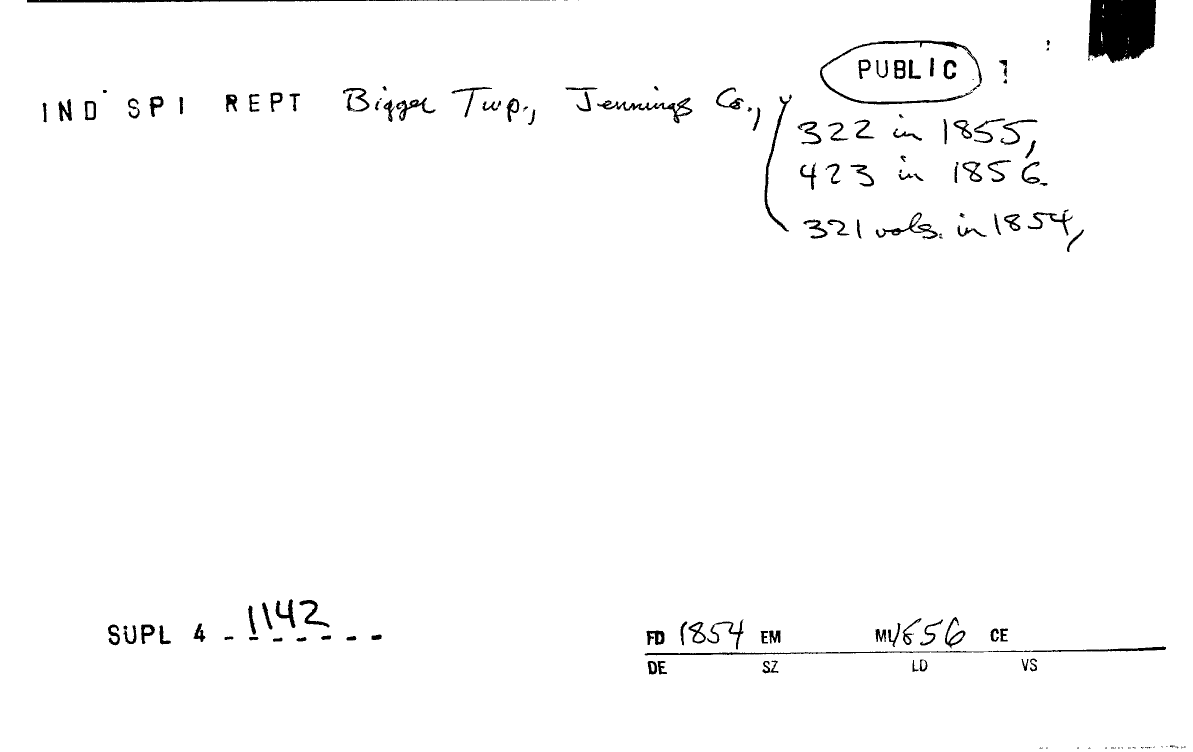 PUBLIC
IND SPI REPT Bigger Twp., Jennings Co.,
322 in 1855,
423 in 1856.
321 vols. in 1854,
SUPL 4 - 1142
FD 1854 EM ML 1856 CE
DE SZ LD VS